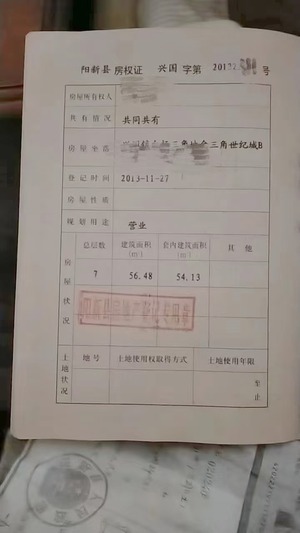 阳新县 房权证 兴国 字第 2013 号
房屋所有权人
共有情况 共同共有
房屋坐落 三角世纪城B
登记时间 2013-11-27
房屋性质
规划用途 营业
房屋状况
总层数 建筑面积(㎡) 套内建筑面积(㎡) 其他
7 56.48 54.13
土地状况
地号 土地使用权取得方式 土地使用年限
至
止